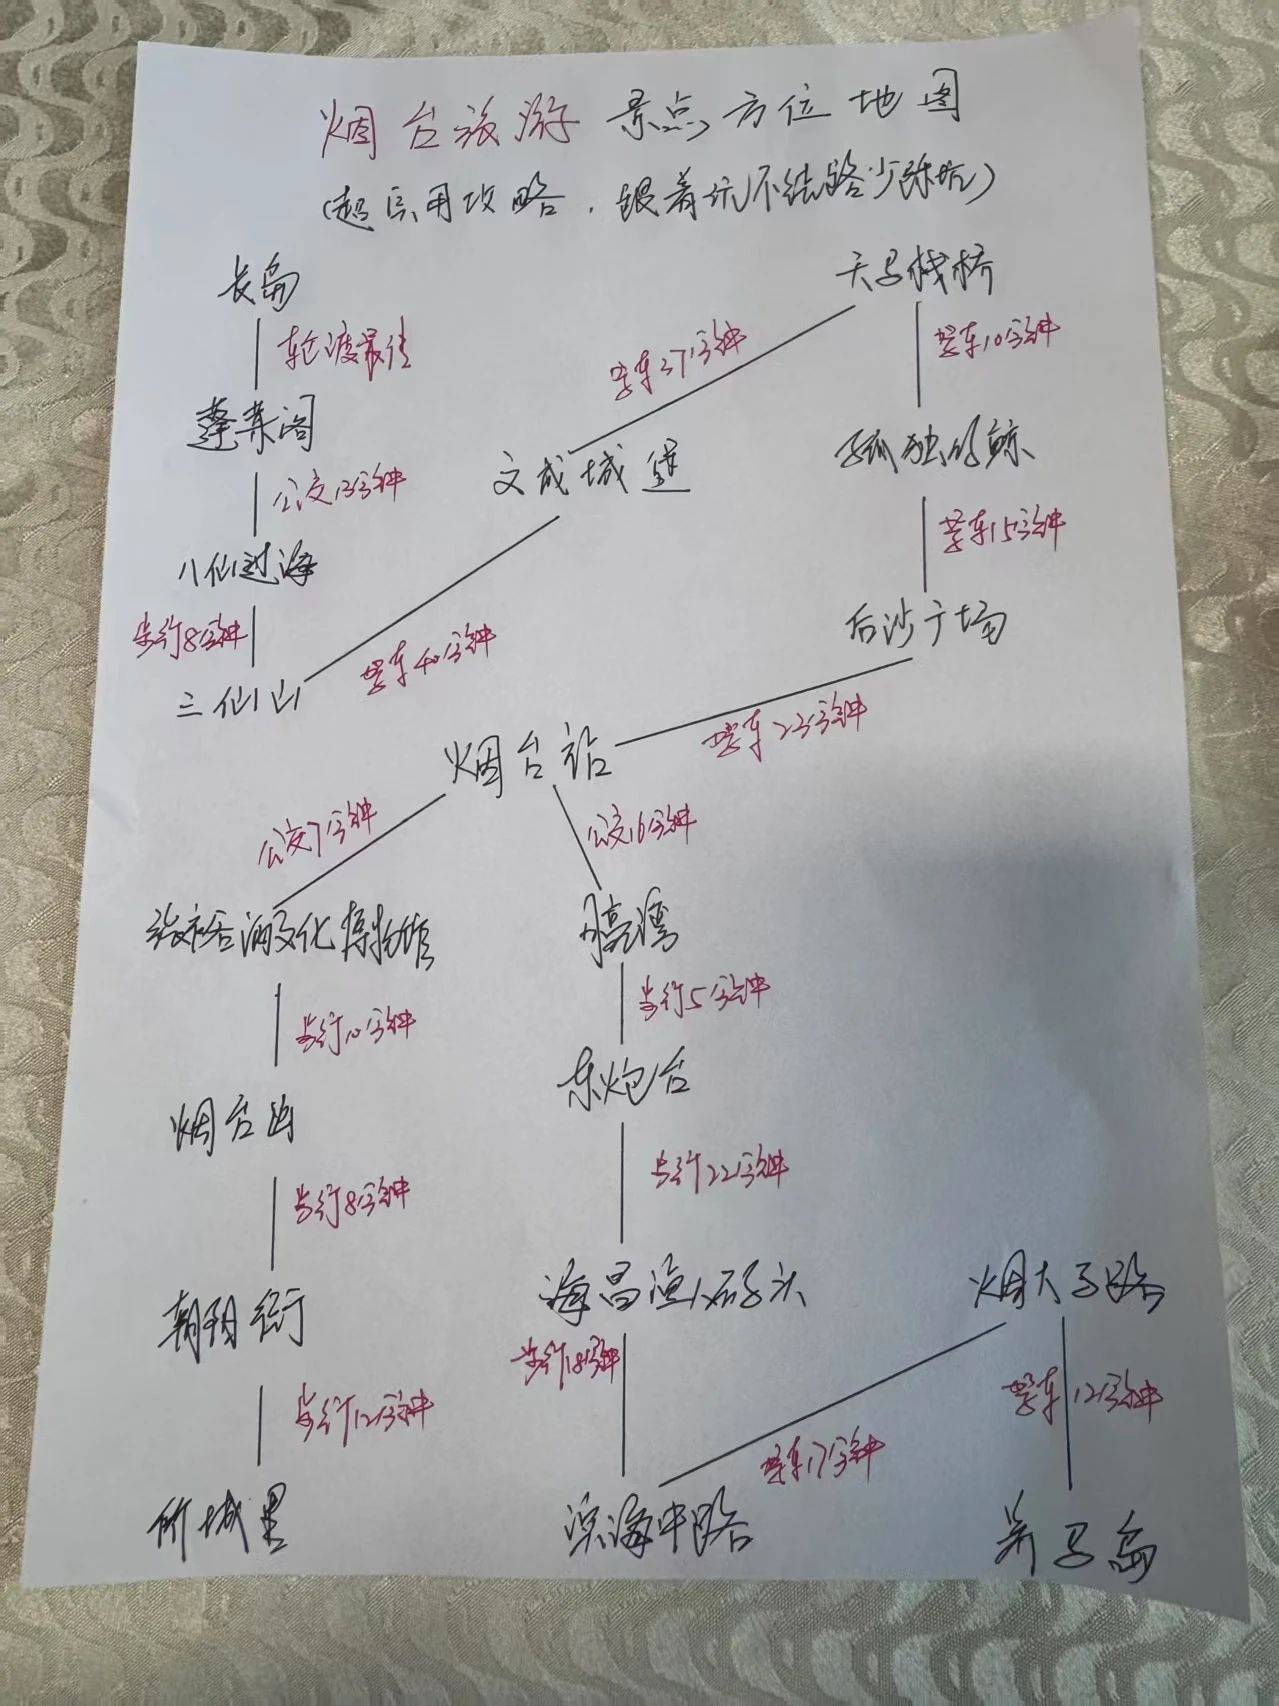 烟台旅游景点方位地图
(超实用攻略,跟着玩不绕路少踩坑)
长岛
天马栈桥
轮渡最佳
驾车37分钟
驾车10分钟
蓬莱阁
文成城堡
孤独的鲸
公交13分钟
驾车15分钟
八仙过海
步行8分钟
驾车40分钟
后沙广场
三仙山
烟台站
驾车23分钟
公交7分钟
公交16分钟
张裕酒文化博物馆
月亮湾
步行10分钟
步行5分钟
东炮台
烟台山
步行8分钟
步行22分钟
海昌渔人码头
烟大子路
朝阳街
步行18分钟
步行12分钟
驾车17分钟
驾车12分钟
所城里
滨海中路
养马岛